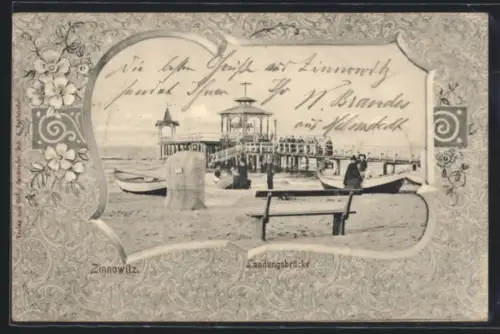 Die besten Grüße aus Zinnowitz
sendet Ihnen Ihr
W. Brandes
aus Helmstedt
Zinnowitz.
Landungsbrücke